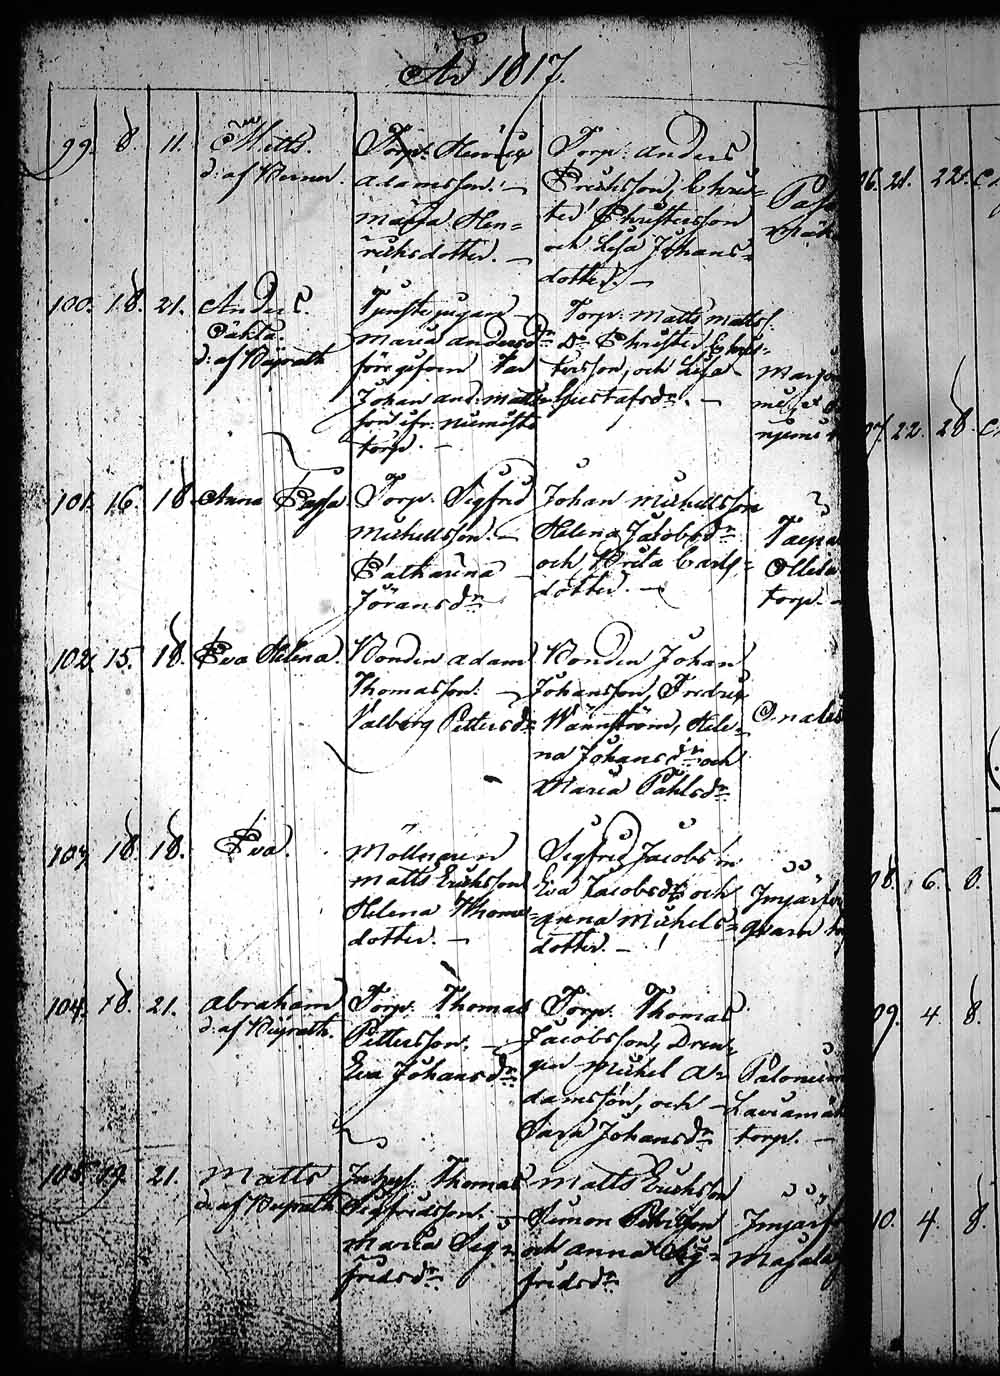 År 1817.
99. 8. 11. Matts.
d: af Werner.
Torp. Henric
Adamsson. —
Maria Hen=
ricksdotter. —
Torp. Anders
Erichsson, Chris=
ter Christersson
och Lisa Johans=
dotter. —
100. 18. 21. Anders.
Oäkta.
d: af Weprath
Tjenstepigan
Maria Andersdr
föregifven Far
Johan And: Matts
son ifr: Niemistö
torp. —
Torp. Matts Mattss.
Dr. Christer Chris=
tersson, och Lisa
Gustafsdr. —
101. 16. 18. Anna Cajsa
Torp. Sigfrid
Michellsson. —
Catharina
Jöransdr
Johan Michellsson
Helena Jacobsdr
och Brita Carls=
dotter. —
torp. —
102. 15. 18. Eva Helena.
Bonden Adam
Thomasson. —
Valborg Pettersdr
Bonden Johan
Johansson, Fredric
Wännström, Hele=
na Johansdr och
Maria Påhlsdr
103. 18. 18. Eva.
Möllnaren
Matts Erichsson
Helena Thomas=
dotter. —
Sigfrid Jacobsson
Eva Jacobsdr och
Anna Michels=
dotter. —
104. 18. 21. Abraham
d: af Weprath.
Torp. Thomas
Pettersson. —
Eva Johansdr
Torp. Thomas
Jacobsson, Dren=
gen Michel A=
damsson, och
Sara Johansdr
torp. —
105. 19. 21. Matts
d: af Weprath
Inhys. Thomas
Sigfridsson. —
Maria Sig=
fridsdr
Matts Erichsson
Simon Pettersson
och Anna Sig=
fridsdr
06. 21. 22.
07. 22. 28.
08. 6. 8.
09. 4 8.
10. 4. 8.